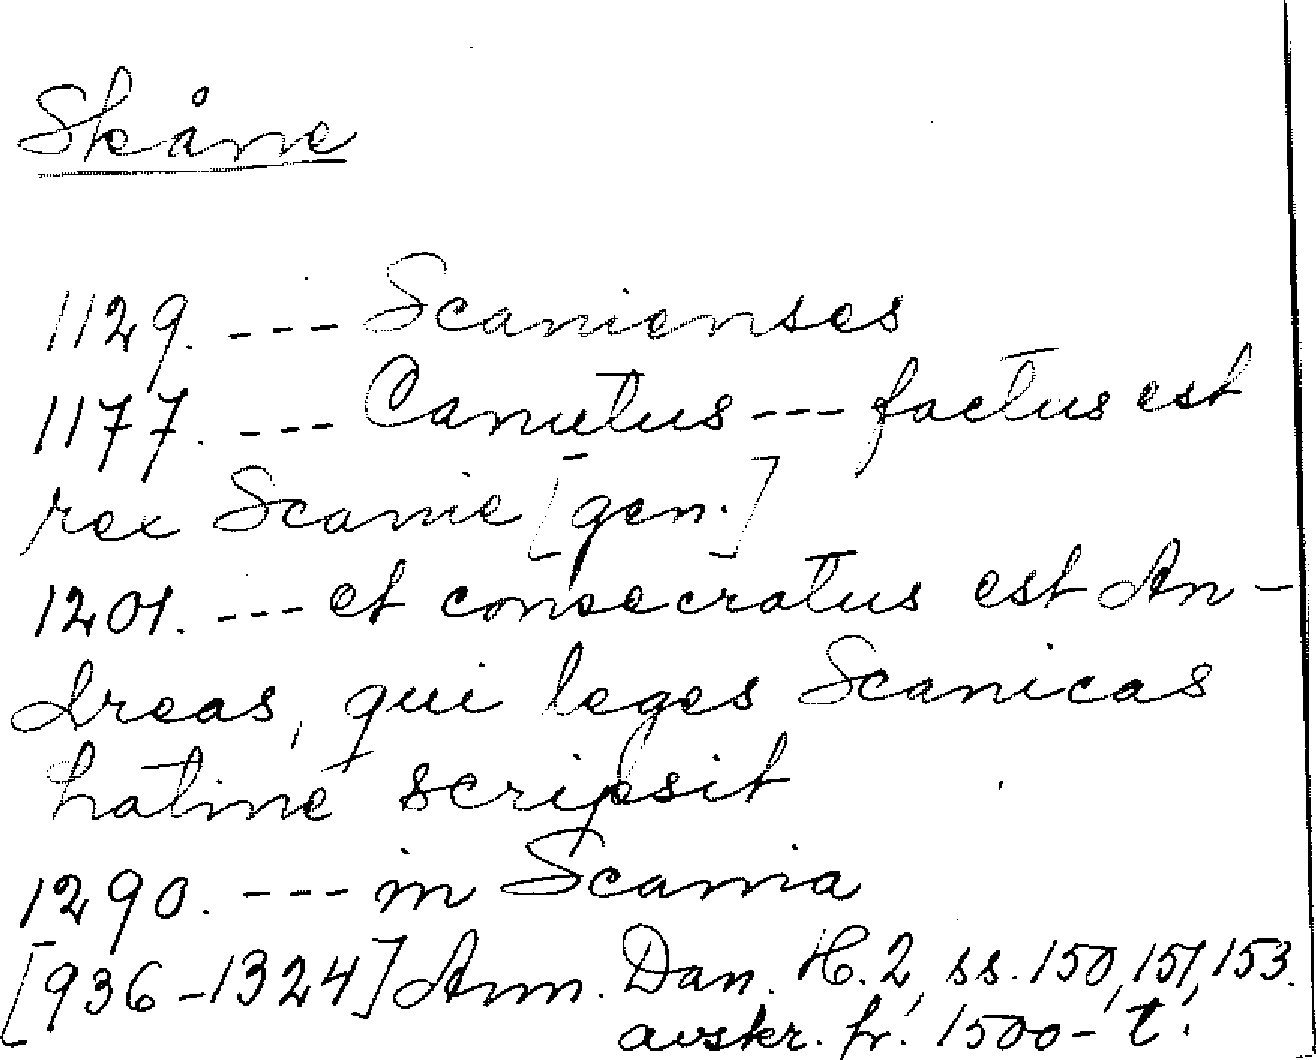 Skåne
1129. --- Scanienses
1177. --- Canutus --- factus est
rex Scanie [gen.]
1201. --- et consecratus est An-
dreas, qui leges Scanicas
latine scripsit
1290. --- in Scania
[936-1324] Ann. Dan. H. 2, ss. 150, 151, 153.
avskr. fr. 1500-t.